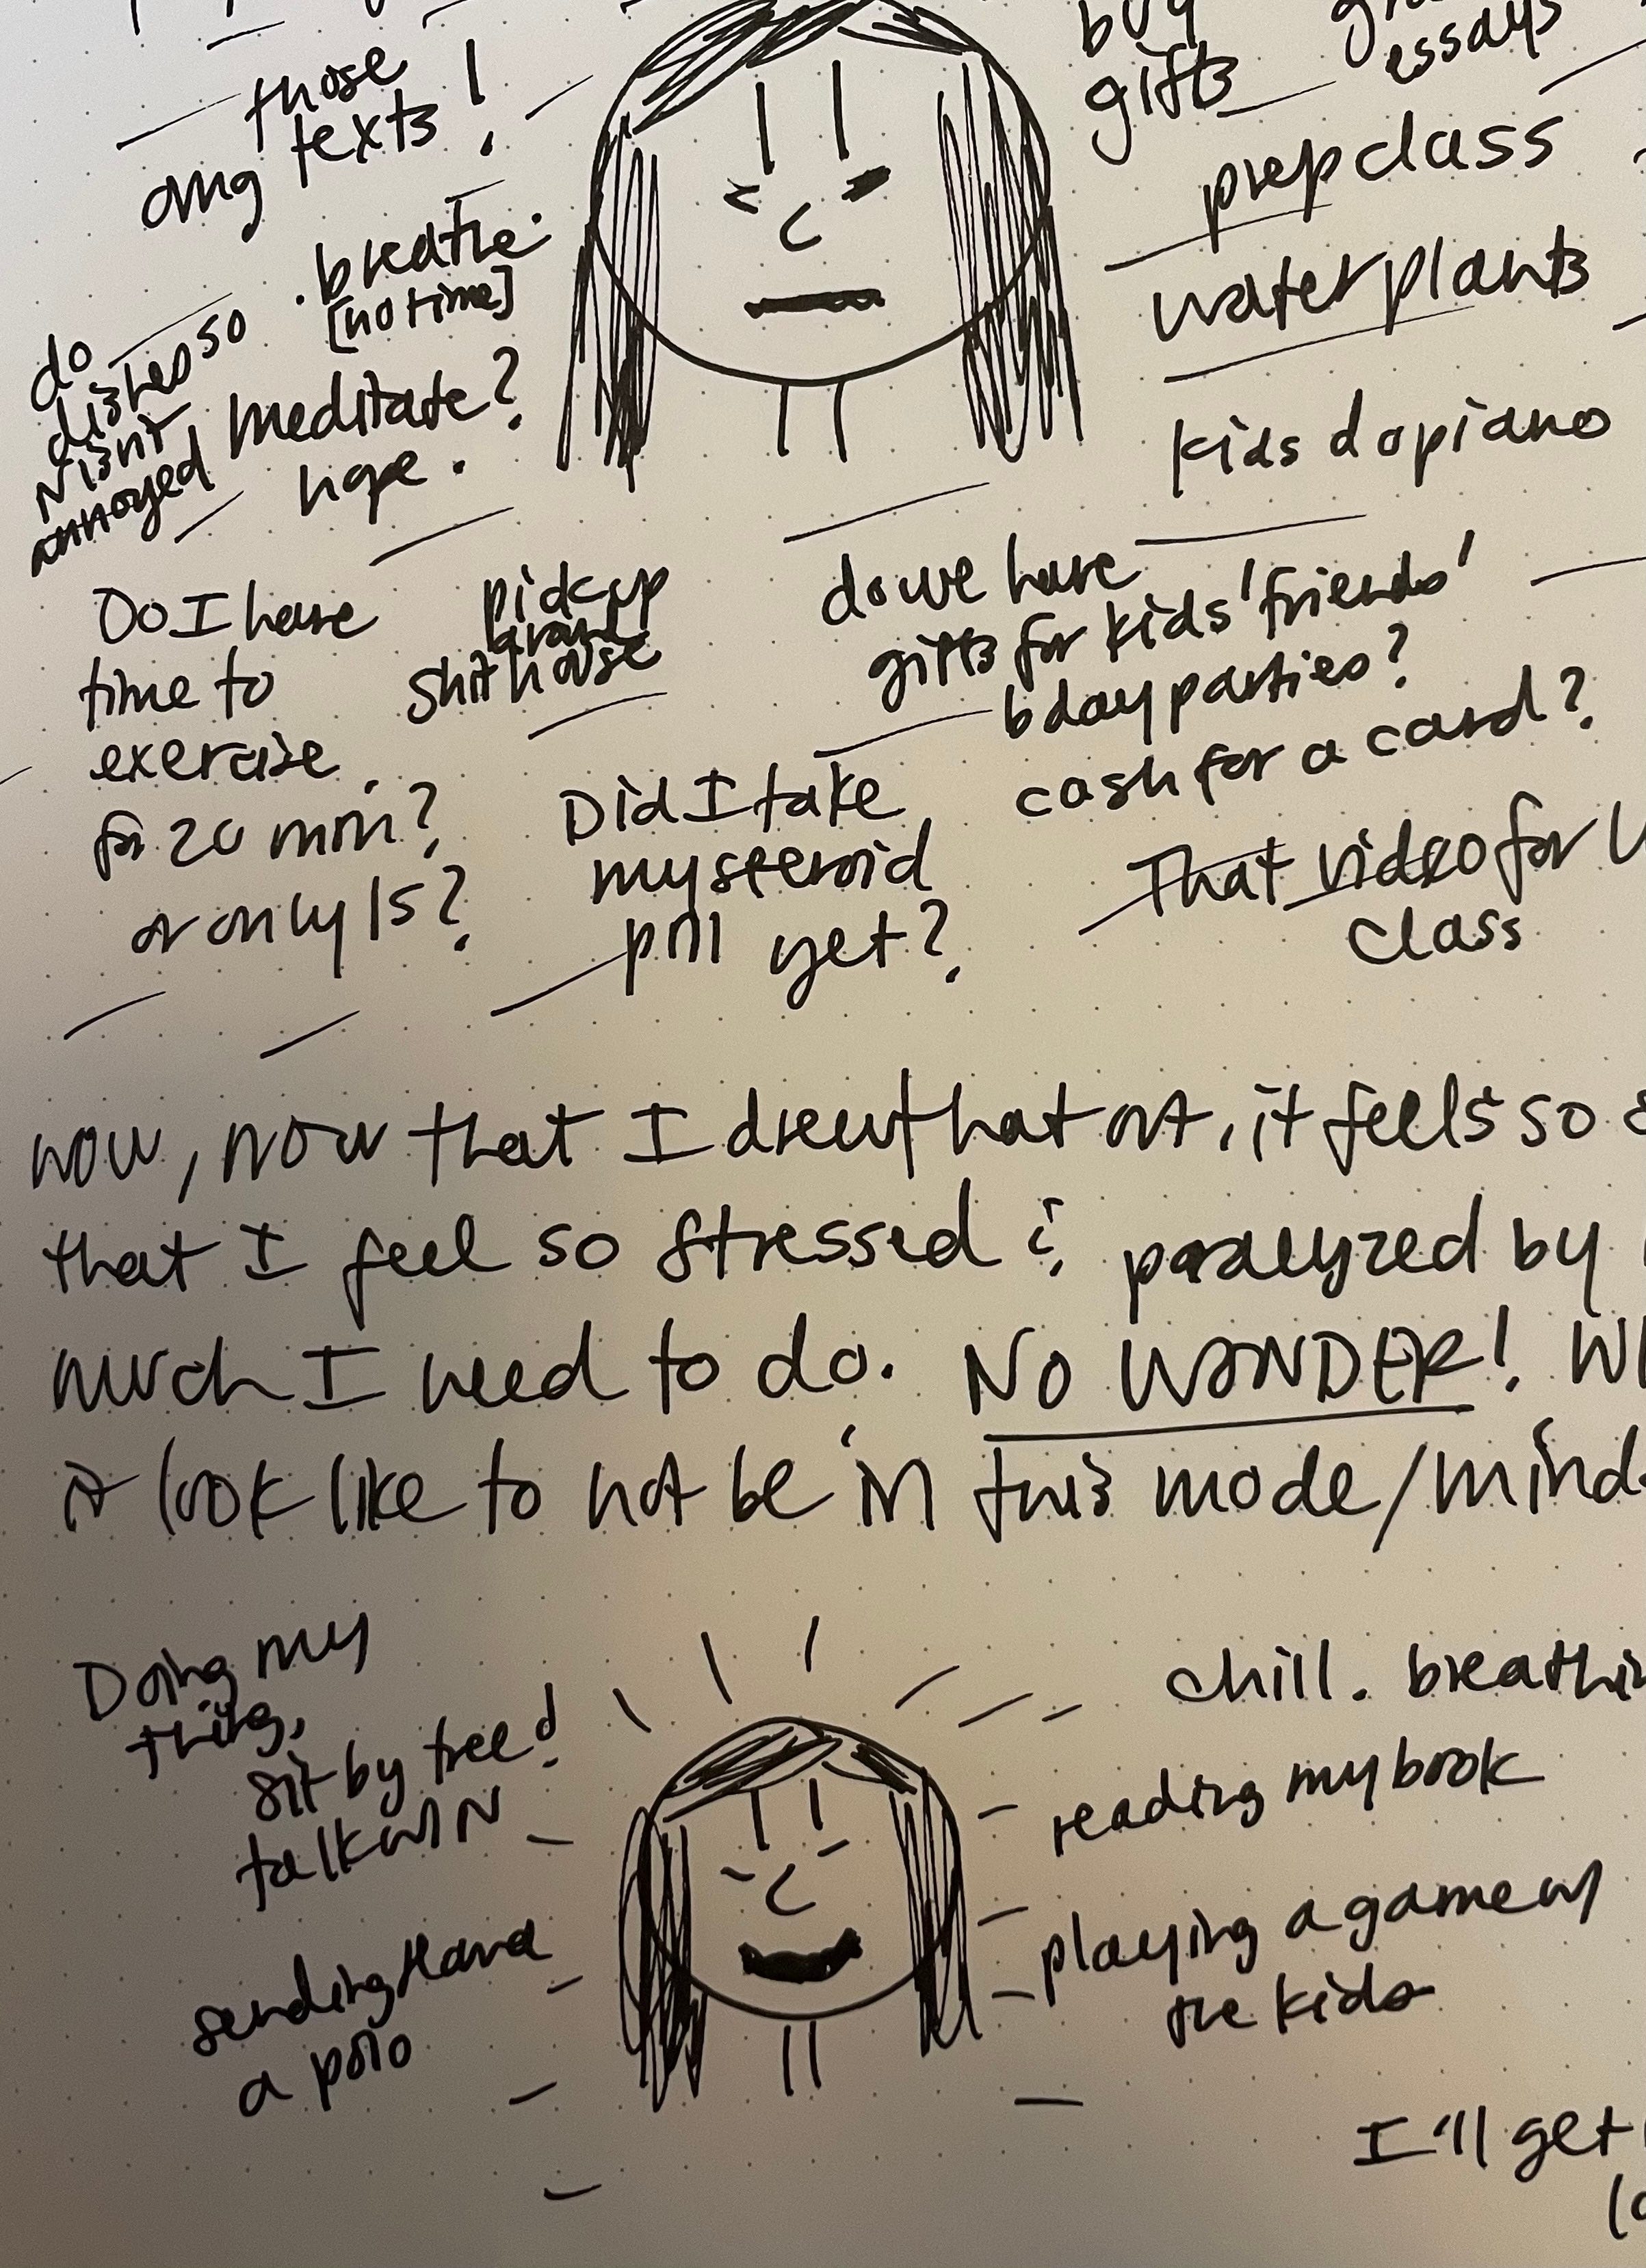 those
texts!
omg
breathe.
[no time]
do
dishes so
N isn't
annoyed
meditate?
nope.
buy
gifts
essays
prep class
water plants
kids do piano
Do I have
time to
exercise
for 20 min?
or only 15?
pick up
shit around
house
do we have
gifts for kids' friends'
bday parties?
cash for a card?
Did I take
my steroid
pill yet?
That video for
class
wow, now that I drew that out, it feels so
that I feel so stressed & paralyzed by
much I need to do. NO WONDER!
it look like to not be in this mode/mind
Doing my
thing.
sit by tree!
talk w/ N
sending Hana
a polo
chill. breathin
reading my book
playing a game w/
the kids
I'll get